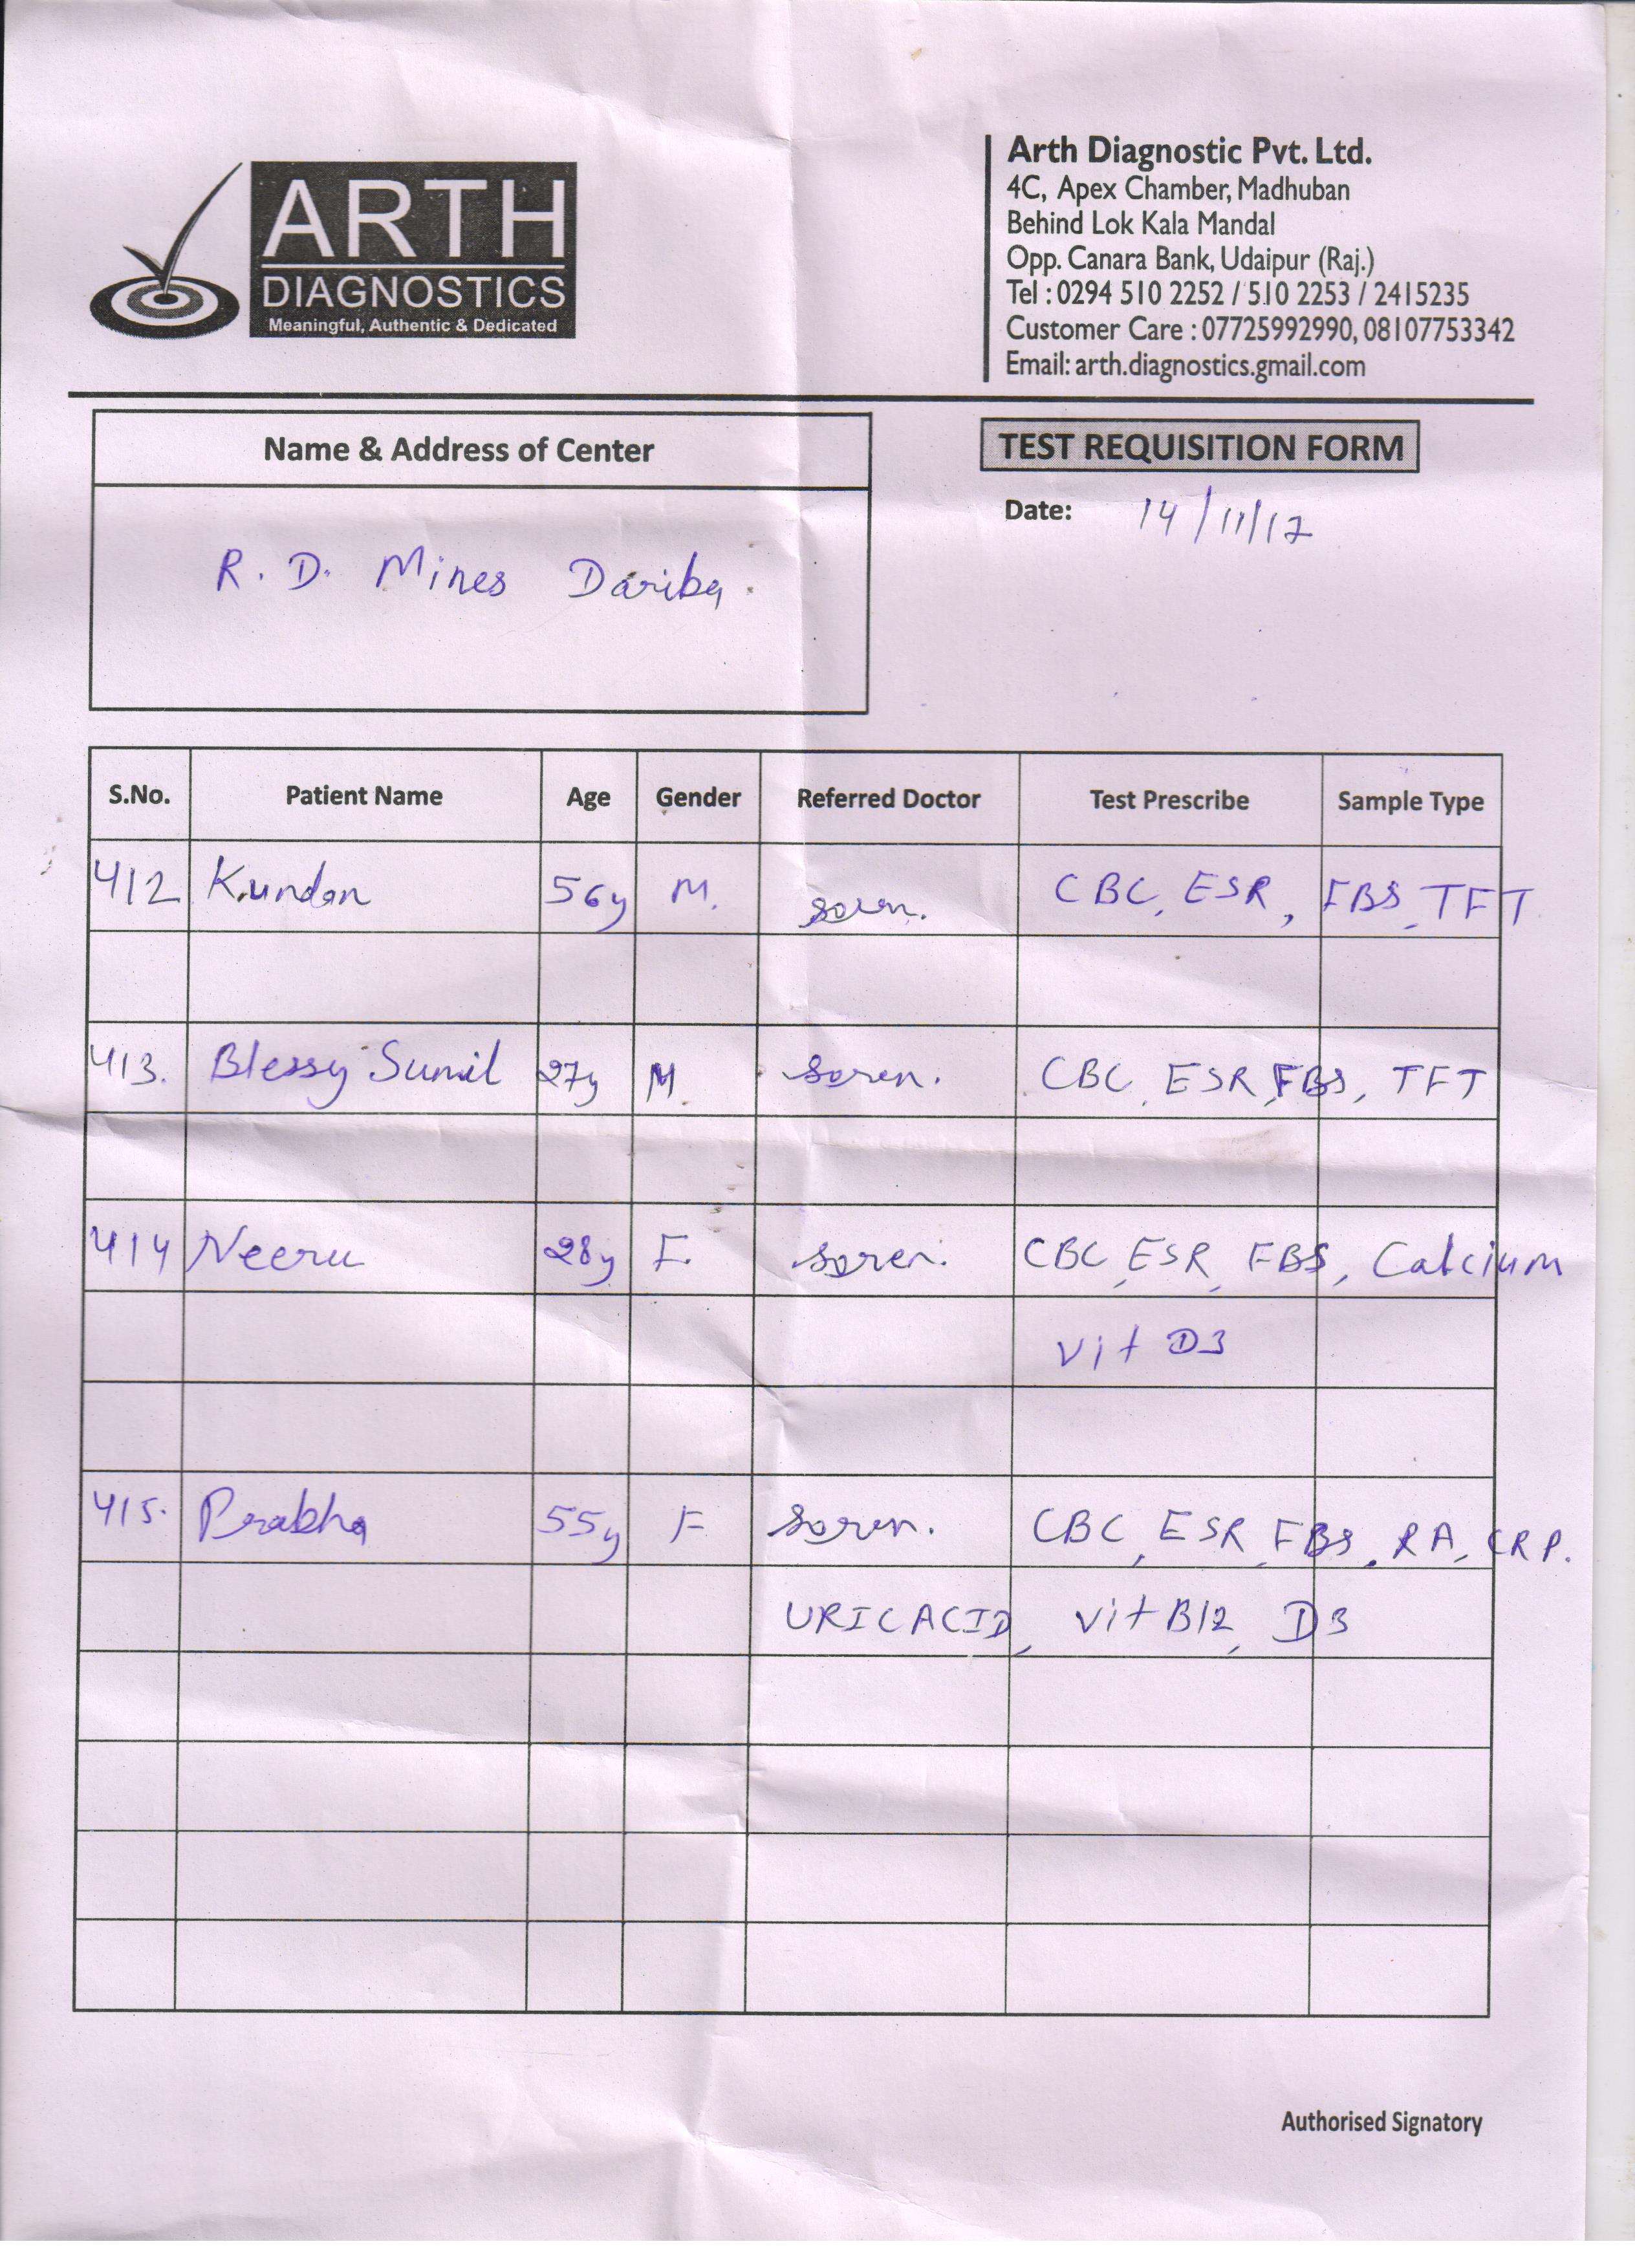 ARTH
DIAGNOSTICS
Meaningful, Authentic & Dedicated
Arth Diagnostic Pvt. Ltd.
4C, Apex Chamber, Madhuban
Behind Lok Kala Mandal
Opp. Canara Bank, Udaipur (Raj.)
Tel : 0294 510 2252 / 510 2253 / 2415235
Customer Care : 07725992990, 08107753342
Email: arth.diagnostics.gmail.com
Name & Address of Center
R. D. Mines Dariba.
TEST REQUISITION FORM
Date: 14/11/17
S.No. Patient Name Age Gender Referred Doctor Test Prescribe Sample Type
412 Kundan 56y M. soren. CBC, ESR, FBS, TFT
413. Blessy Sunil 27y M soren. CBC, ESR, FBS, TFT
414 Neeru 28y F. soren. CBC, ESR, FBS, Calcium
Vit D3
415. Prabha 55y F soren. CBC, ESR, FBS, RA, CRP.
URIC ACID, Vit B12, D3
Authorised Signatory